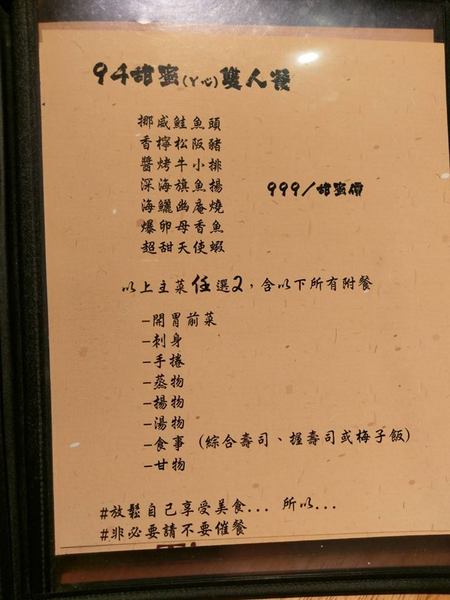 94甜蜜(ㄚ心)雙人餐
挪威鮭魚頭
香檸松阪豬
醬烤牛小排
深海旗魚揚
999/甜蜜價
海鱺幽庵燒
爆卵母香魚
超甜天使蝦
以上主菜任選2，含以下所有附餐
-開胃前菜
-刺身
-手捲
-蒸物
-揚物
-湯物
-食事 (綜合壽司、握壽司或梅子飯)
-甘物
#放鬆自己享受美食... 所以...
#非必要請不要催餐